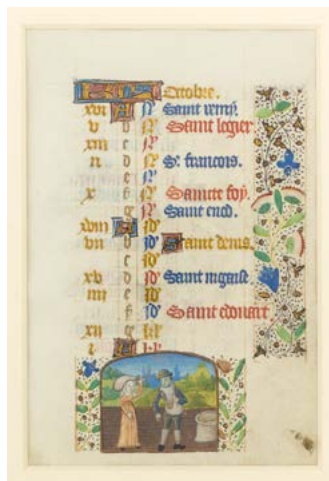 Octobre.
xvi A N' Saint remy.
v b N' Saint legier
xiii c N'
ii d N' St francois.
e N'
x f N' Saincte foy.
g N' Saint
xviii A Id'
vii b Id' Saint denis.
c Id'
xv d Id' Saint nigaise
iiii e Id'
f Id' Saint edouart
xii g
i A